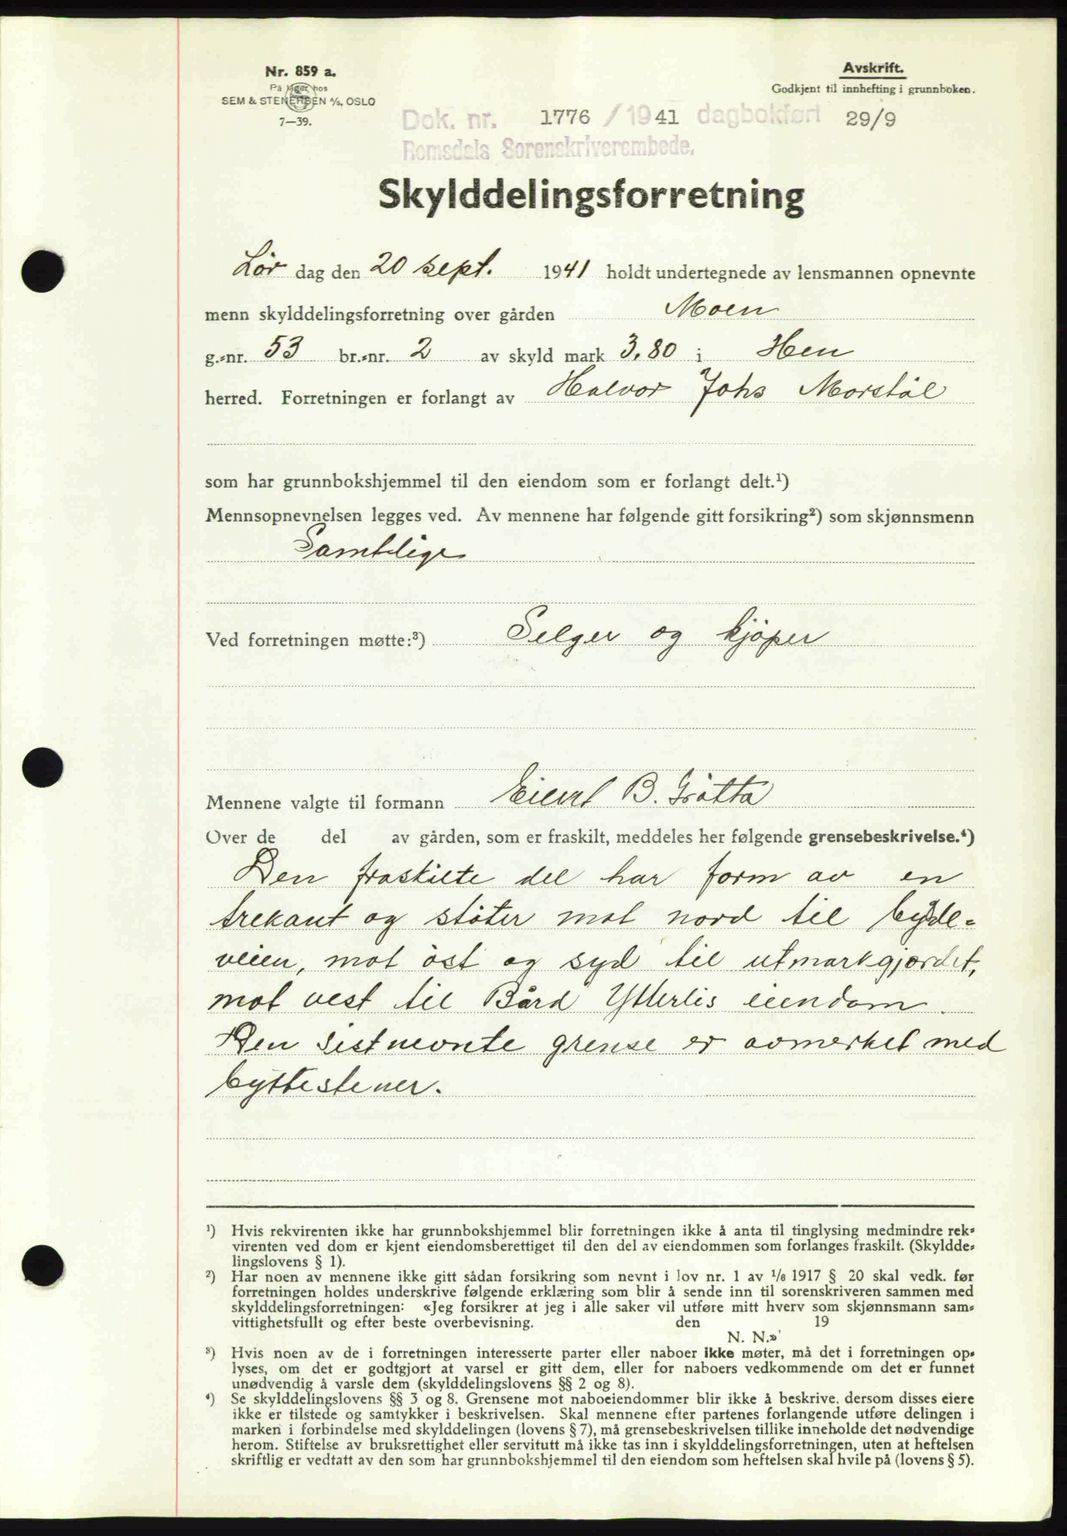 Nr. 859 a.
På lager hos
SEM & STENERSEN A/S, OSLO
7—39.
Avskrift.
Godkjent til innhefting i grunnboken.
Dok. nr. 1776 / 1941 dagbokført 29/9
Romsdals Sorenskriverembede.
Skylddelingsforretning
Lør dag den 20 sept. 1941 holdt undertegnede av lensmannen opnevnte
menn skylddelingsforretning over gården Moen
g.-nr. 53 br.-nr. 2 av skyld mark 3,80 i Hen
herred. Forretningen er forlangt av Halvor Johs Morstøl
som har grunnbokshjemmel til den eiendom som er forlangt delt.¹)
Mennsopnevnelsen legges ved. Av mennene har følgende gitt forsikring²) som skjønnsmenn
Samtlige
Ved forretningen møtte:³) Selger og kjøper
Mennene valgte til formann B. Grøtta
Over de del av gården, som er fraskilt, meddeles her følgende grensebeskrivelse.⁴)
Den fraskilte del har form av en
trekant og støter mot nord til bygde-
veien, mot øst og syd til utmarkgjordet,
mot vest til Bård Ytterlis eiendom.
Den sistnevnte grense er avmerket med
byttestener.
¹) Hvis rekvirenten ikke har grunnbokshjemmel blir forretningen ikke å anta til tinglysing medmindre rek-
virenten ved dom er kjent eiendomsberettiget til den del av eiendommen som forlanges fraskilt. (Skyldde-
lingslovens § 1).
²) Har noen av mennene ikke gitt sådan forsikring som nevnt i lov nr. 1 av ¹/₆ 1917 § 20 skal vedk. før
forretningen holdes underskrive følgende erklæring som blir å sende inn til sorenskriveren sammen med
skylddelingsforretningen: «Jeg forsikrer at jeg i alle saker vil utføre mitt hverv som skjønnsmann sam-
vittighetsfullt og efter beste overbevisning. den 19
N. N.»
³) Hvis noen av de i forretningen interesserte parter eller naboer ikke møter, må det i forretningen op-
lyses, om det er godtgjort at varsel er gitt dem, eller for naboers vedkommende om det er funnet
unødvendig å varsle dem (skylddelingslovens §§ 2 og 8).
⁴) Se skylddelingslovens §§ 3 og 8. Grensene mot naboeiendommer blir ikke å beskrive, dersom disses eiere
ikke er tilstede og samtykker i beskrivelsen. Skal mennene efter partenes forlangende utføre delingen i
marken i forbindelse med skylddelingen (lovens § 7), må grensebeskrivelsen tillike inneholde det nødvendige
herom. Stiftelse av bruksrettighet eller servitutt må ikke tas inn i skylddelingsforretningen, uten at heftelsen
skriftlig er vedtatt av den som har grunnbokshjemmel til den eiendom som heftelsen skal hvile på (lovens § 5).